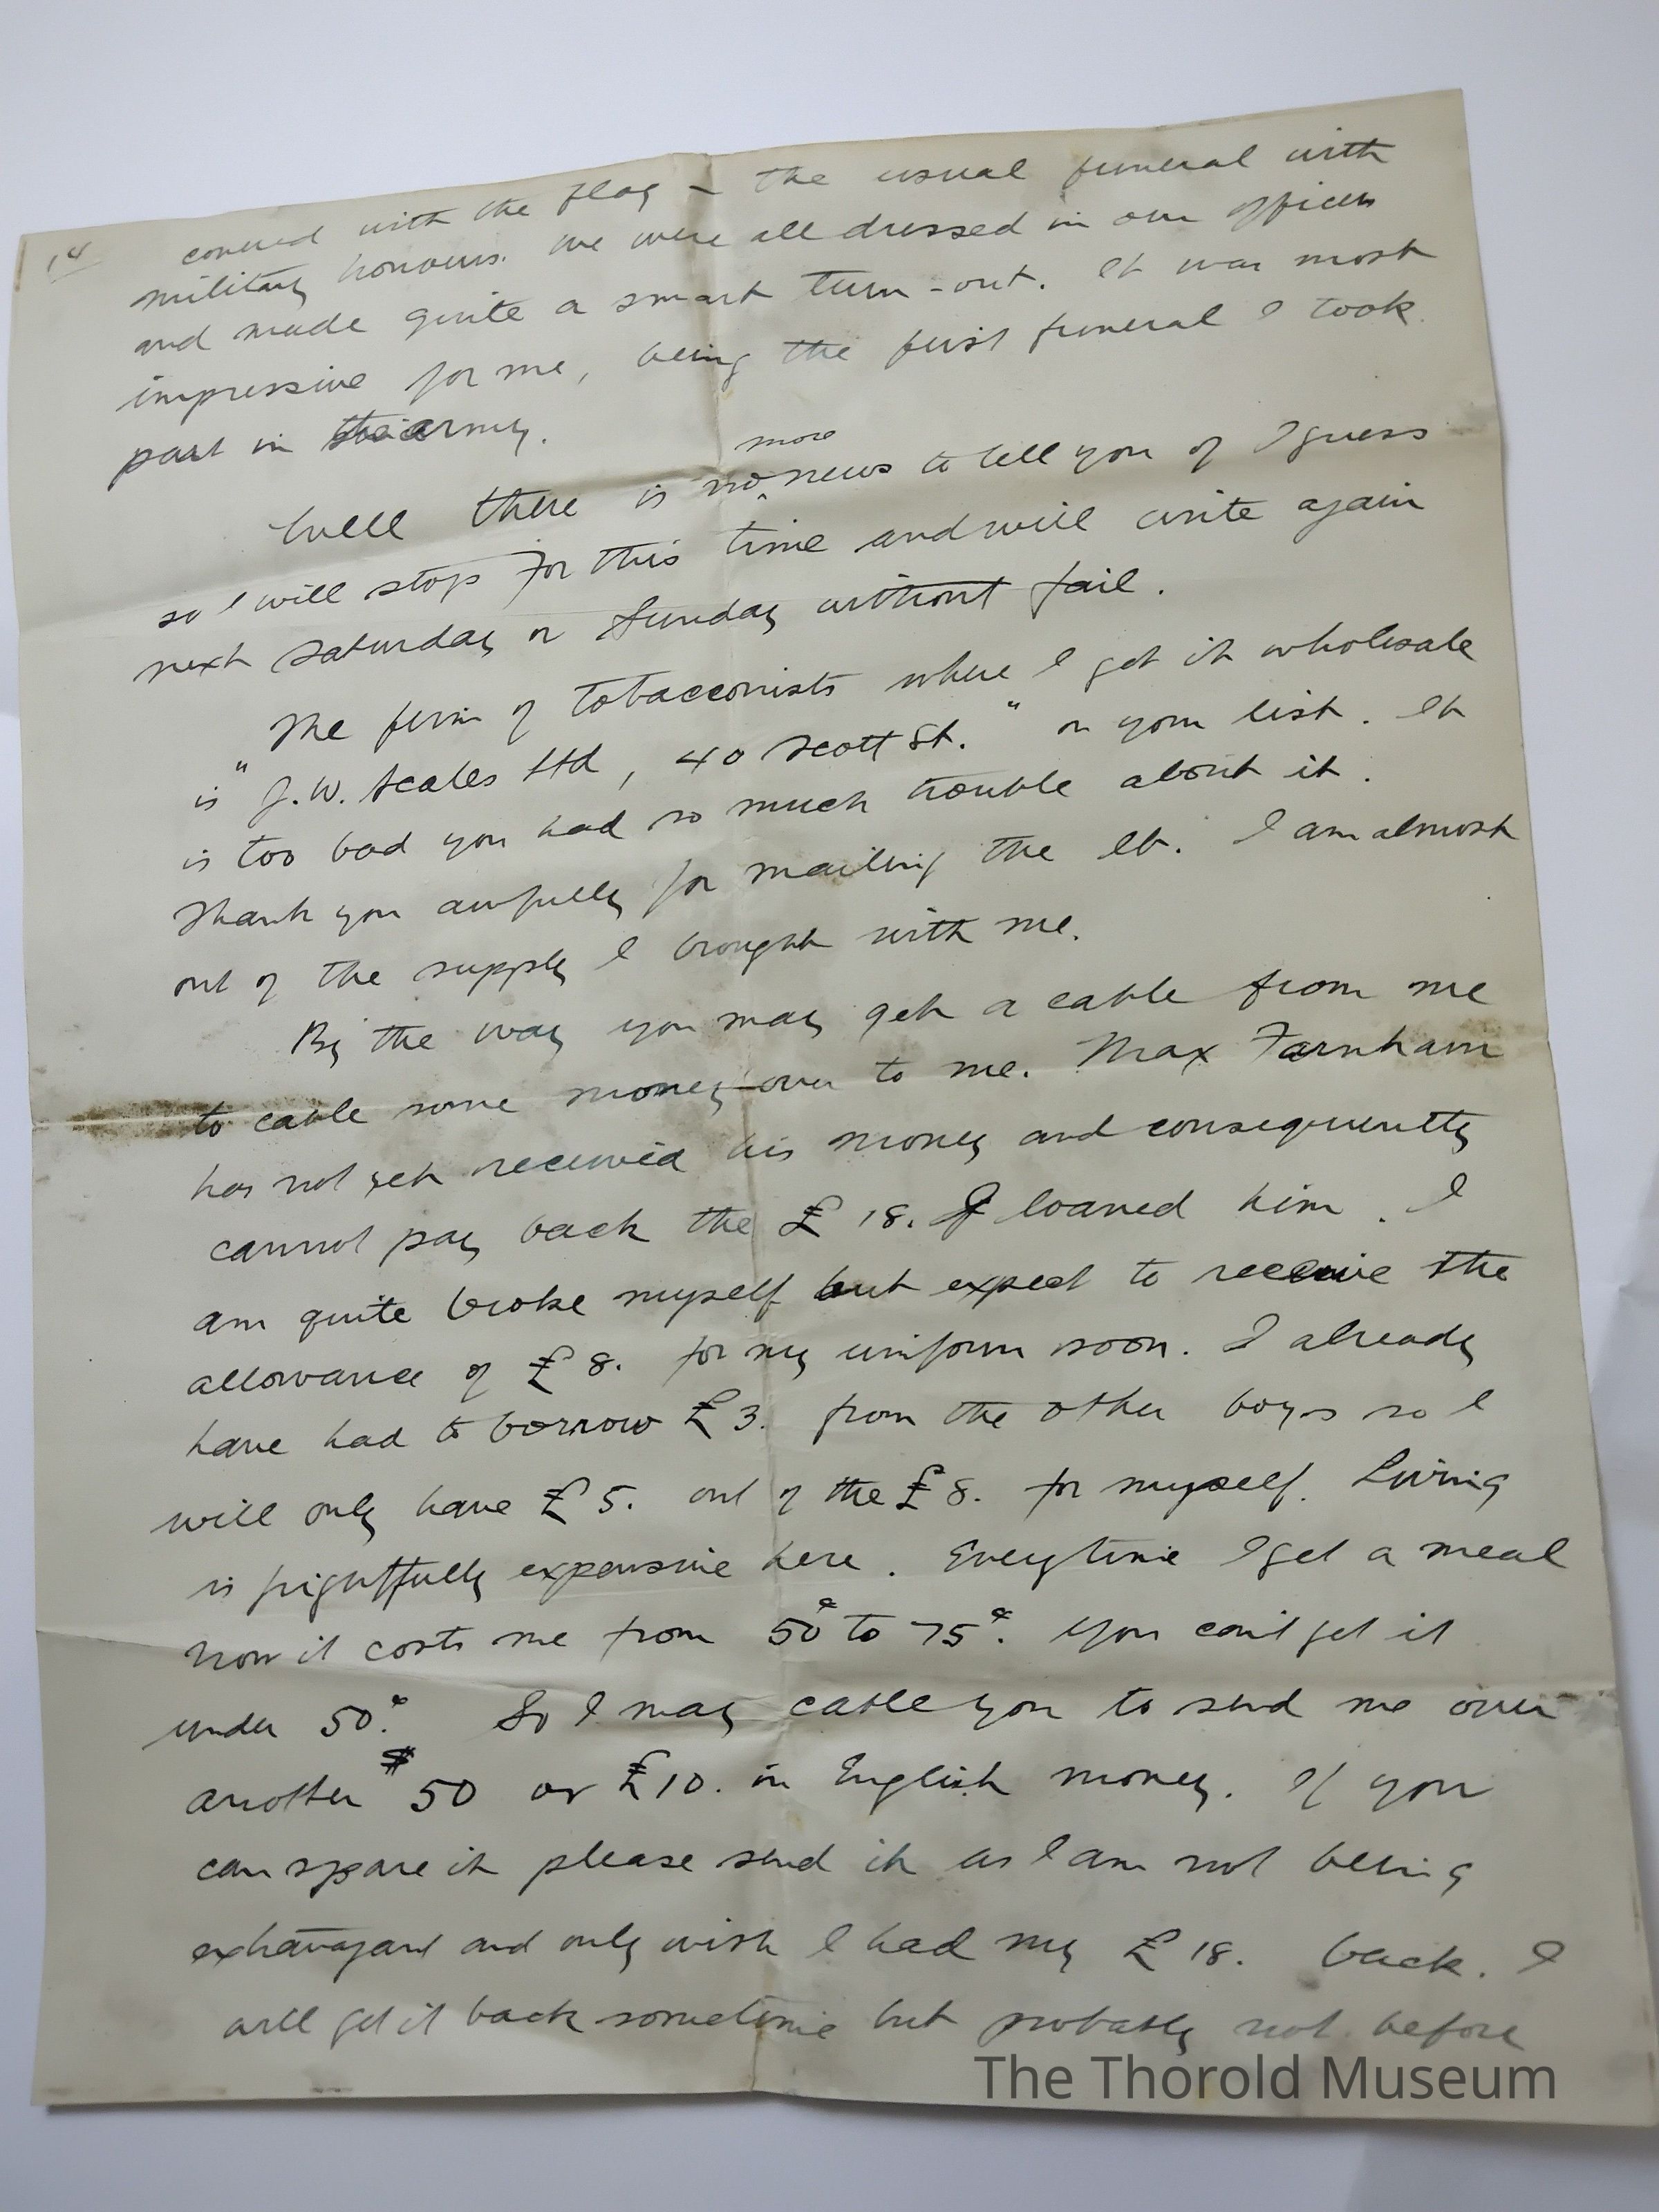 14
covered with the flag – the usual funeral with
military honours. We were all dressed in our officers
and made quite a smart turn-out. It was most
impressive for me, being the first funeral I took
part in the army.
more
Well there is no ^ news to tell you of I guess
so I will stop for this time and will write again
next Saturday or Sunday without fail.
The firm of tobacconists where I get it wholesale
is "J.W. Scales Ltd, 40 Scott St." on your list. It
is too bad you had so much trouble about it.
Thank you awfully for mailing the lb. I am almost
out of the supply I brought with me.
By the way you may get a cable from me
to cable some money over to me. Max Farnham
has not yet received his money and consequently
cannot pay back the £18. I loaned him. I
am quite broke myself but expect to receive the
allowance of £8. for my uniform soon. I already
have had to borrow £3. from the other boys so I
will only have £5. out of the £8. for myself. Living
is frightfully expensive here. Everytime I get a meal
now it costs me from 50¢ to 75¢. You can't get it
under 50¢. So I may cable you to send me over
another $50 or £10. in English money. If you
can spare it please send it as I am not being
extravagant and only wish I had my £18. back. I
will get it back sometime but probably not before
The Thorold Museum